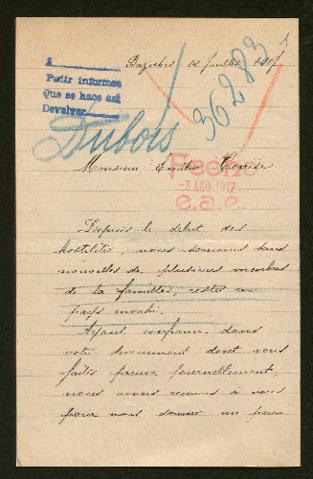 1
Bazoches 12 Juillet 1917
A
Pedir informes
Que se haos asi
Devolver
36283
Dubois
Monsieur Emilio
Fecha
-3 AGO. 1917
e.a.e.
Depuis le début des
hostilités, nous sommes sans
nouvelles de plusieurs membres
de la famille, restés en
pays envahi.
Ayant confiance dans
votre dévouement dont vous
faites preuve journellement,
nous avons recours à vous
pour nous donner un peu